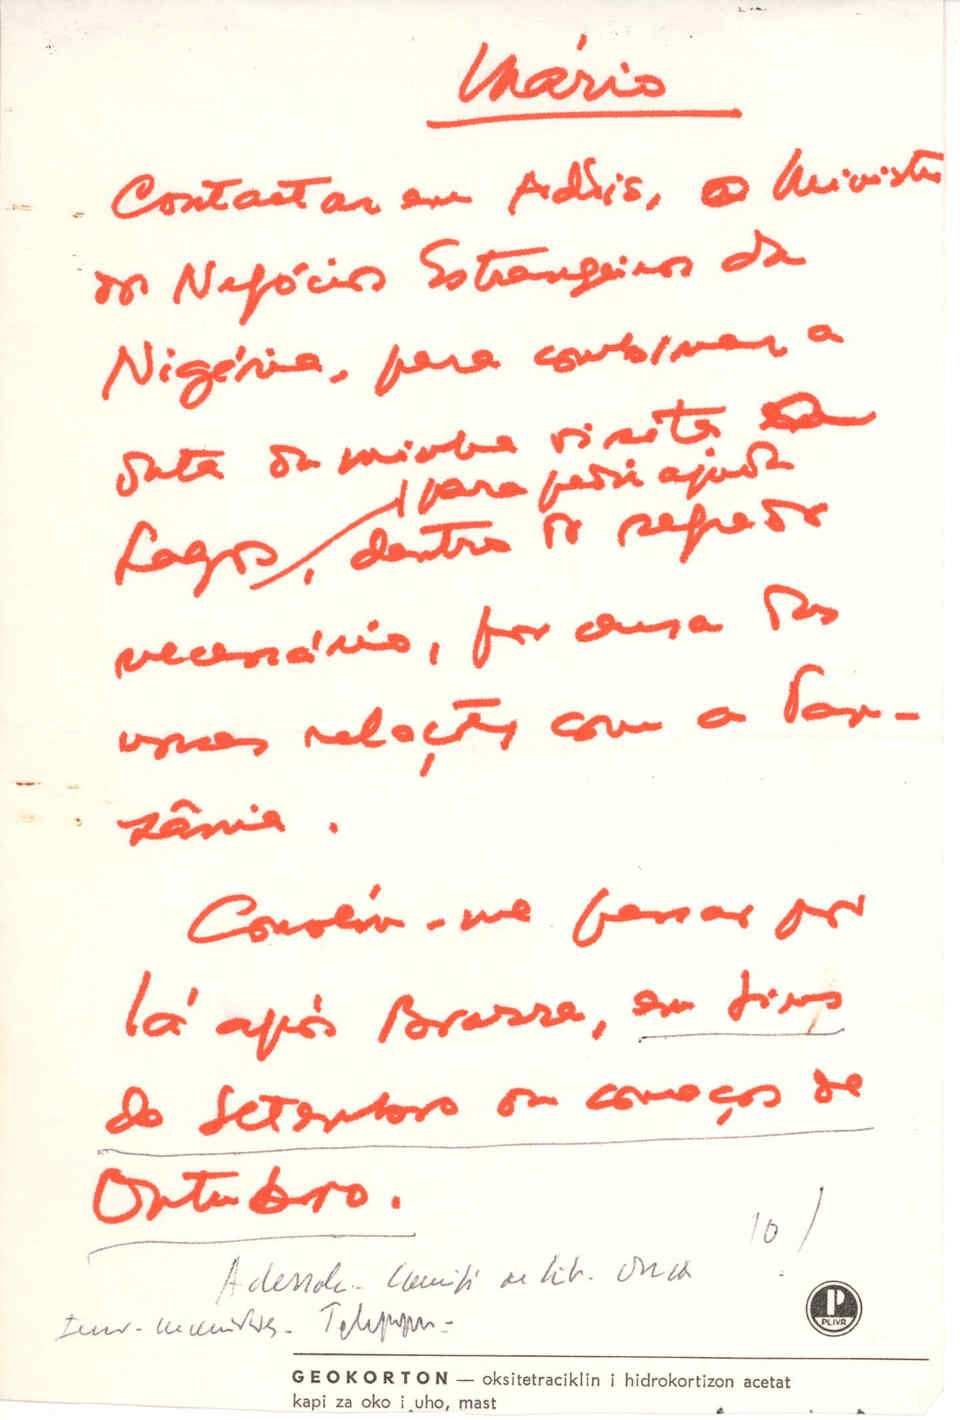 Mário
Contactar em Addis, o Ministro
dos Negócios Estrangeiros da
Nigéria, para combinar a
data da minha visita a
para pedir ajuda
Lagos, dentro do segredo
necessário, por causa das
vossas relações com a Tan-
zânia.
Convém-me passar por
lá após Brazza, em fins
de Setembro ou começos de
Outubro.
10/
de lib.
Telegr.
P
PLIVA
GEOKORTON — oksitetraciklin i hidrokortizon acetat
kapi za oko i uho, mast